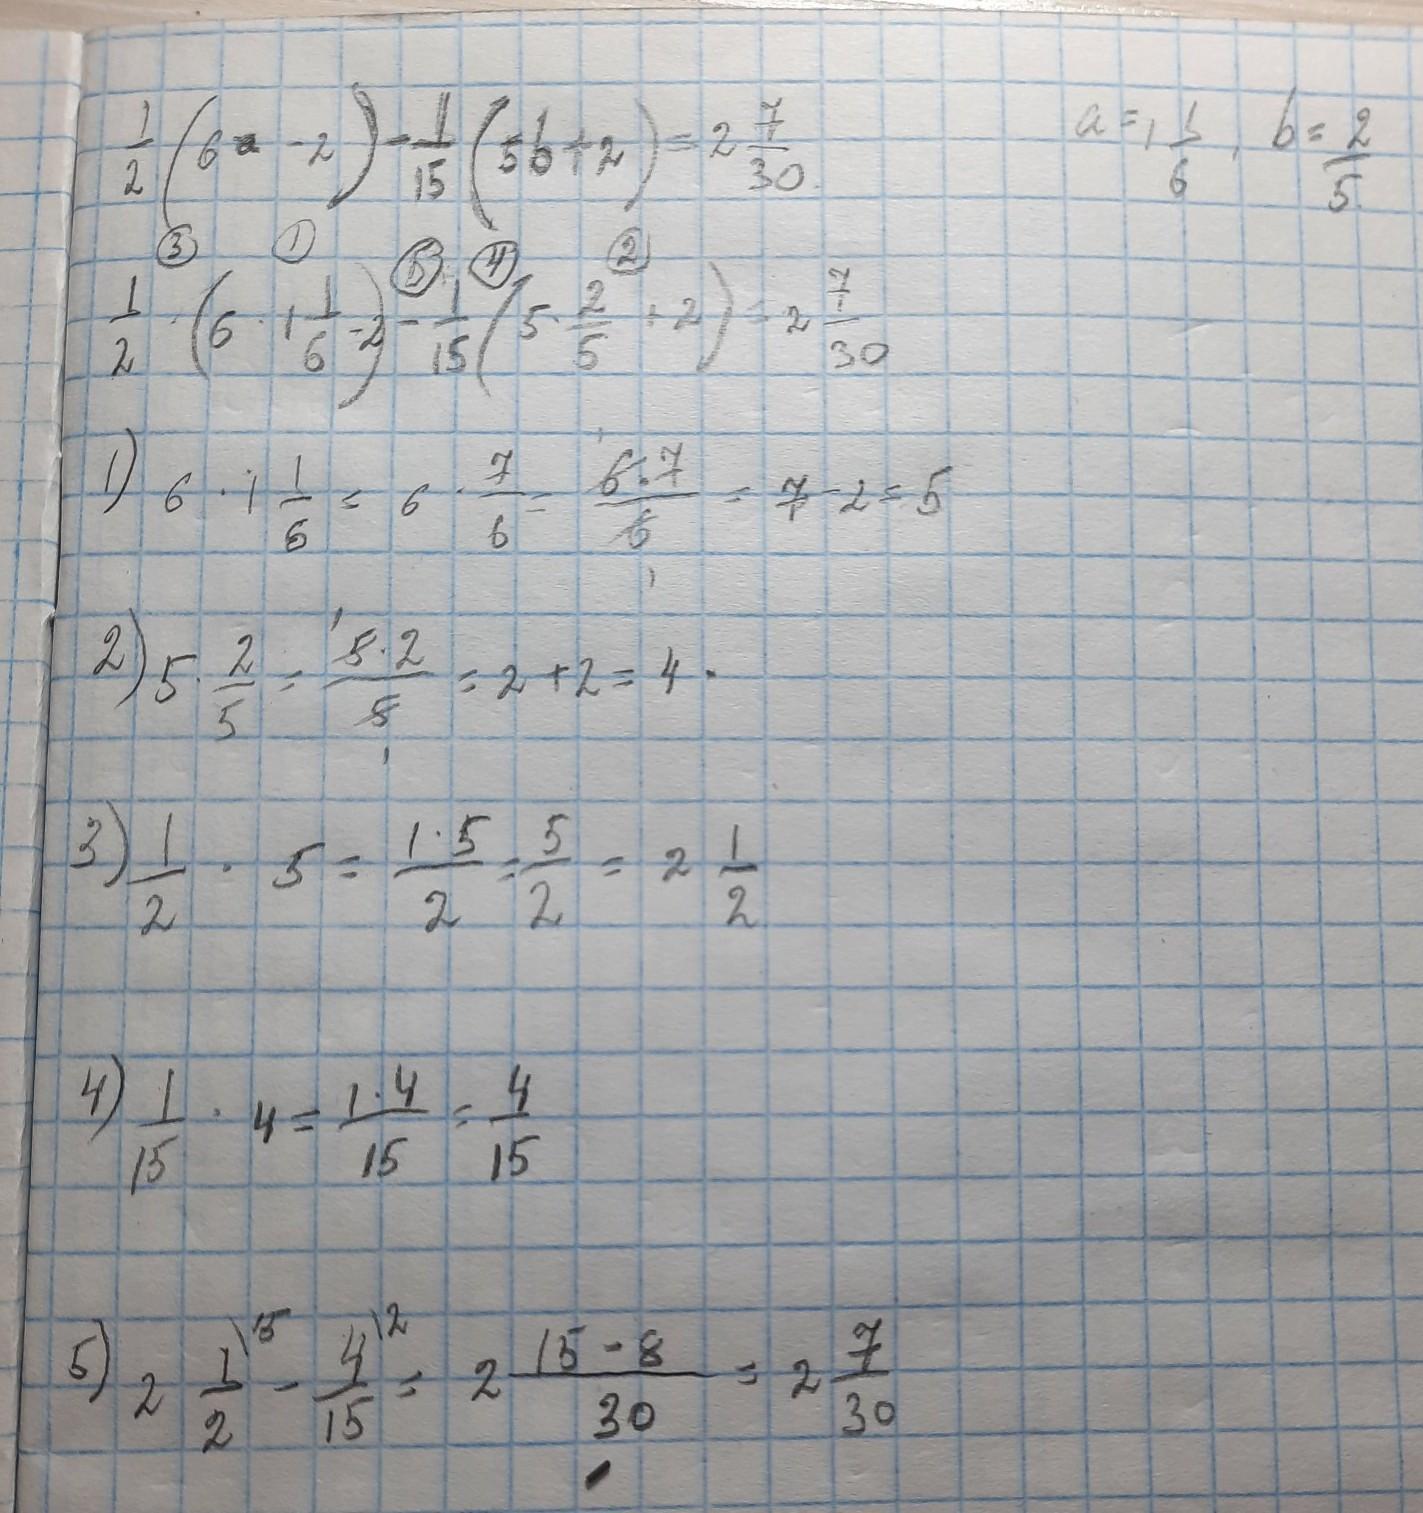 1/2 (6a - 2) - 1/15 (5b + 2) = 2 7/30   a = 1 1/6, b = 2/5.
③ ① ⑤ ④ ②
1/2 · (6 · 1 1/6 - 2) - 1/15 (5 · 2/5 + 2) = 2 7/30
1) 6 · 1 1/6 = 6 · 7/6 = 6·7/6 = 7 - 2 = 5
2) 5 · 2/5 = 5·2/5 = 2 + 2 = 4
3) 1/2 · 5 = 1·5/2 = 5/2 = 2 1/2
4) 1/15 · 4 = 1·4/15 = 4/15
5) 2 1\15/2 - 4\2/15 = 2 15-8/30 = 2 7/30